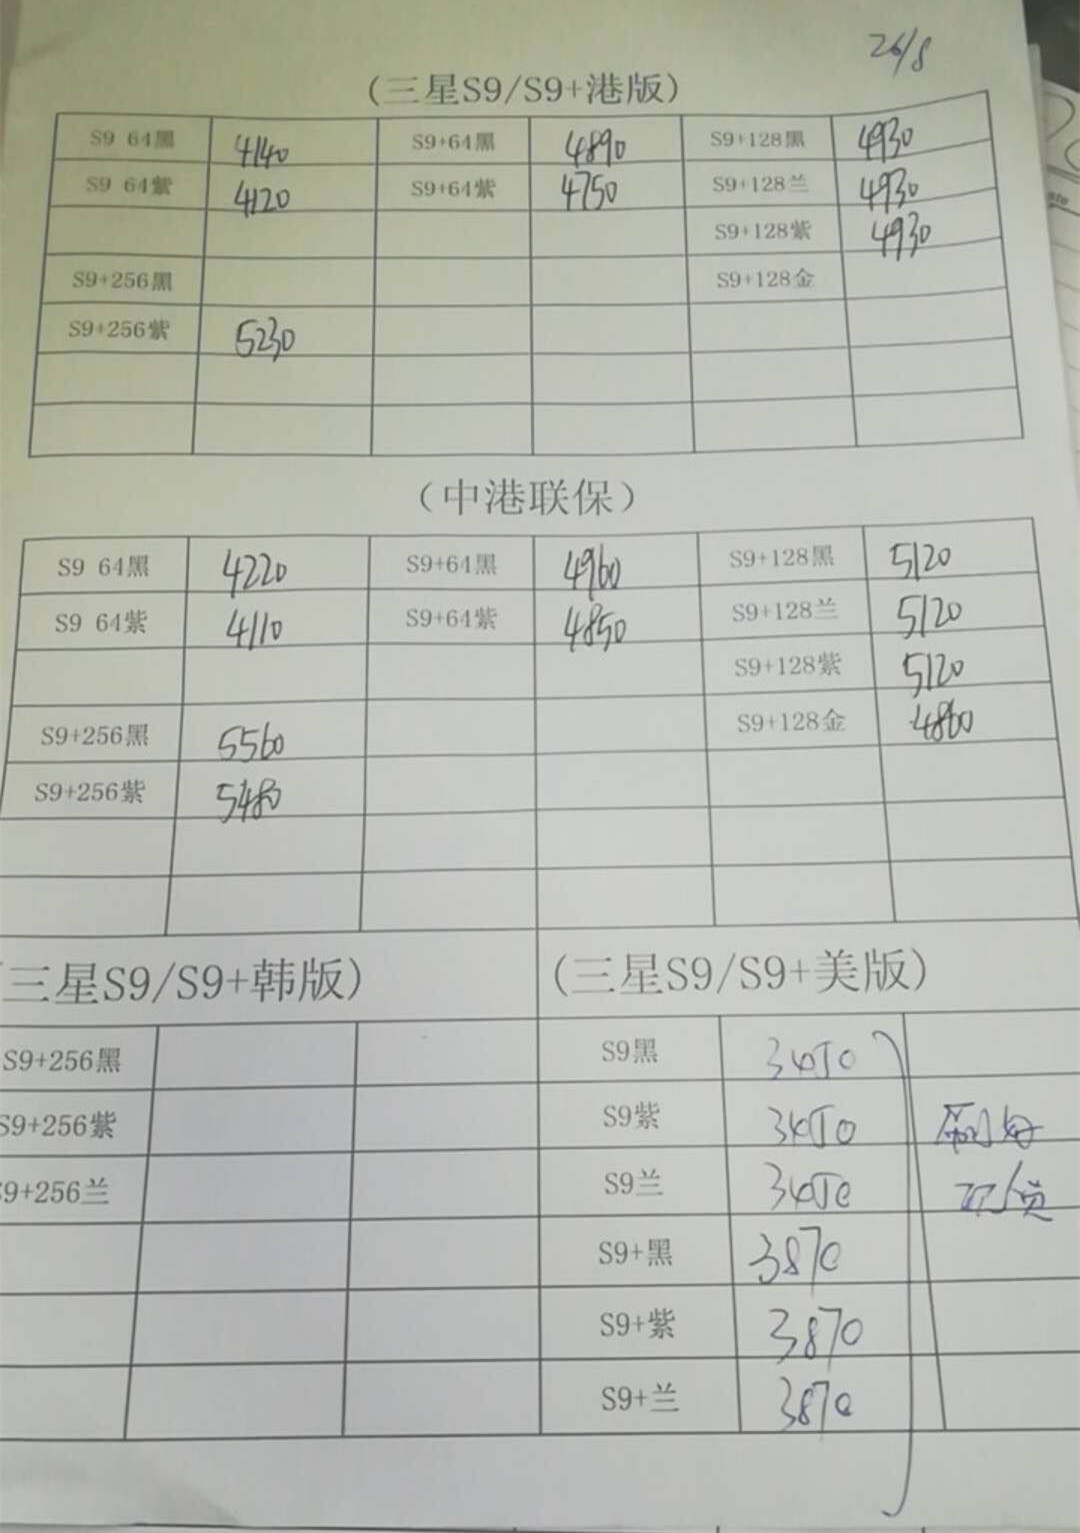 26/8
(三星S9/S9+港版)
S9 64黑 4140 S9+64黑 4890 S9+128黑 4930
S9 64紫 4120 S9+64紫 4750 S9+128兰 4930
S9+128紫 4930
S9+256黑 S9+128金
S9+256紫 5230
（中港联保）
S9 64黑 4220 S9+64黑 4960 S9+128黑 5120
S9 64紫 4110 S9+64紫 4850 S9+128兰 5120
S9+128紫 5120
S9+256黑 5560 S9+128金 4860
S9+256紫 5480
三星S9/S9+韩版) (三星S9/S9+美版)
S9+256黑 S9黑 3450
S9+256紫 S9紫 3450 刷好
9+256兰 S9兰 3450
S9+黑 3870
S9+紫 3870
S9+兰 3870